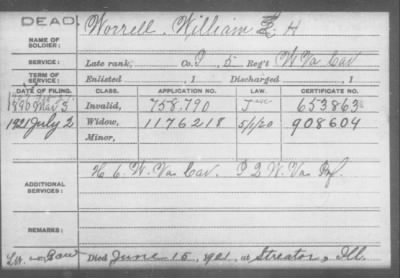 DEAD.
NAME OF SOLDIER: Worrell, William H
SERVICE: Late rank, Co. I, 5 Reg't W Va Cav
TERM OF SERVICE: Enlisted , 1 Discharged , 1
DATE OF FILING. CLASS. APPLICATION NO. LAW. CERTIFICATE NO.
1890 Invalid, 758.790 653863
1921 July 2 Widow, 1176218 5/1/20 908604
Minor,
ADDITIONAL SERVICES: H 6 W. Va Cav. I 2 W. Va Inf.
REMARKS:
Died June 15, 1921, at Streator, Ill.